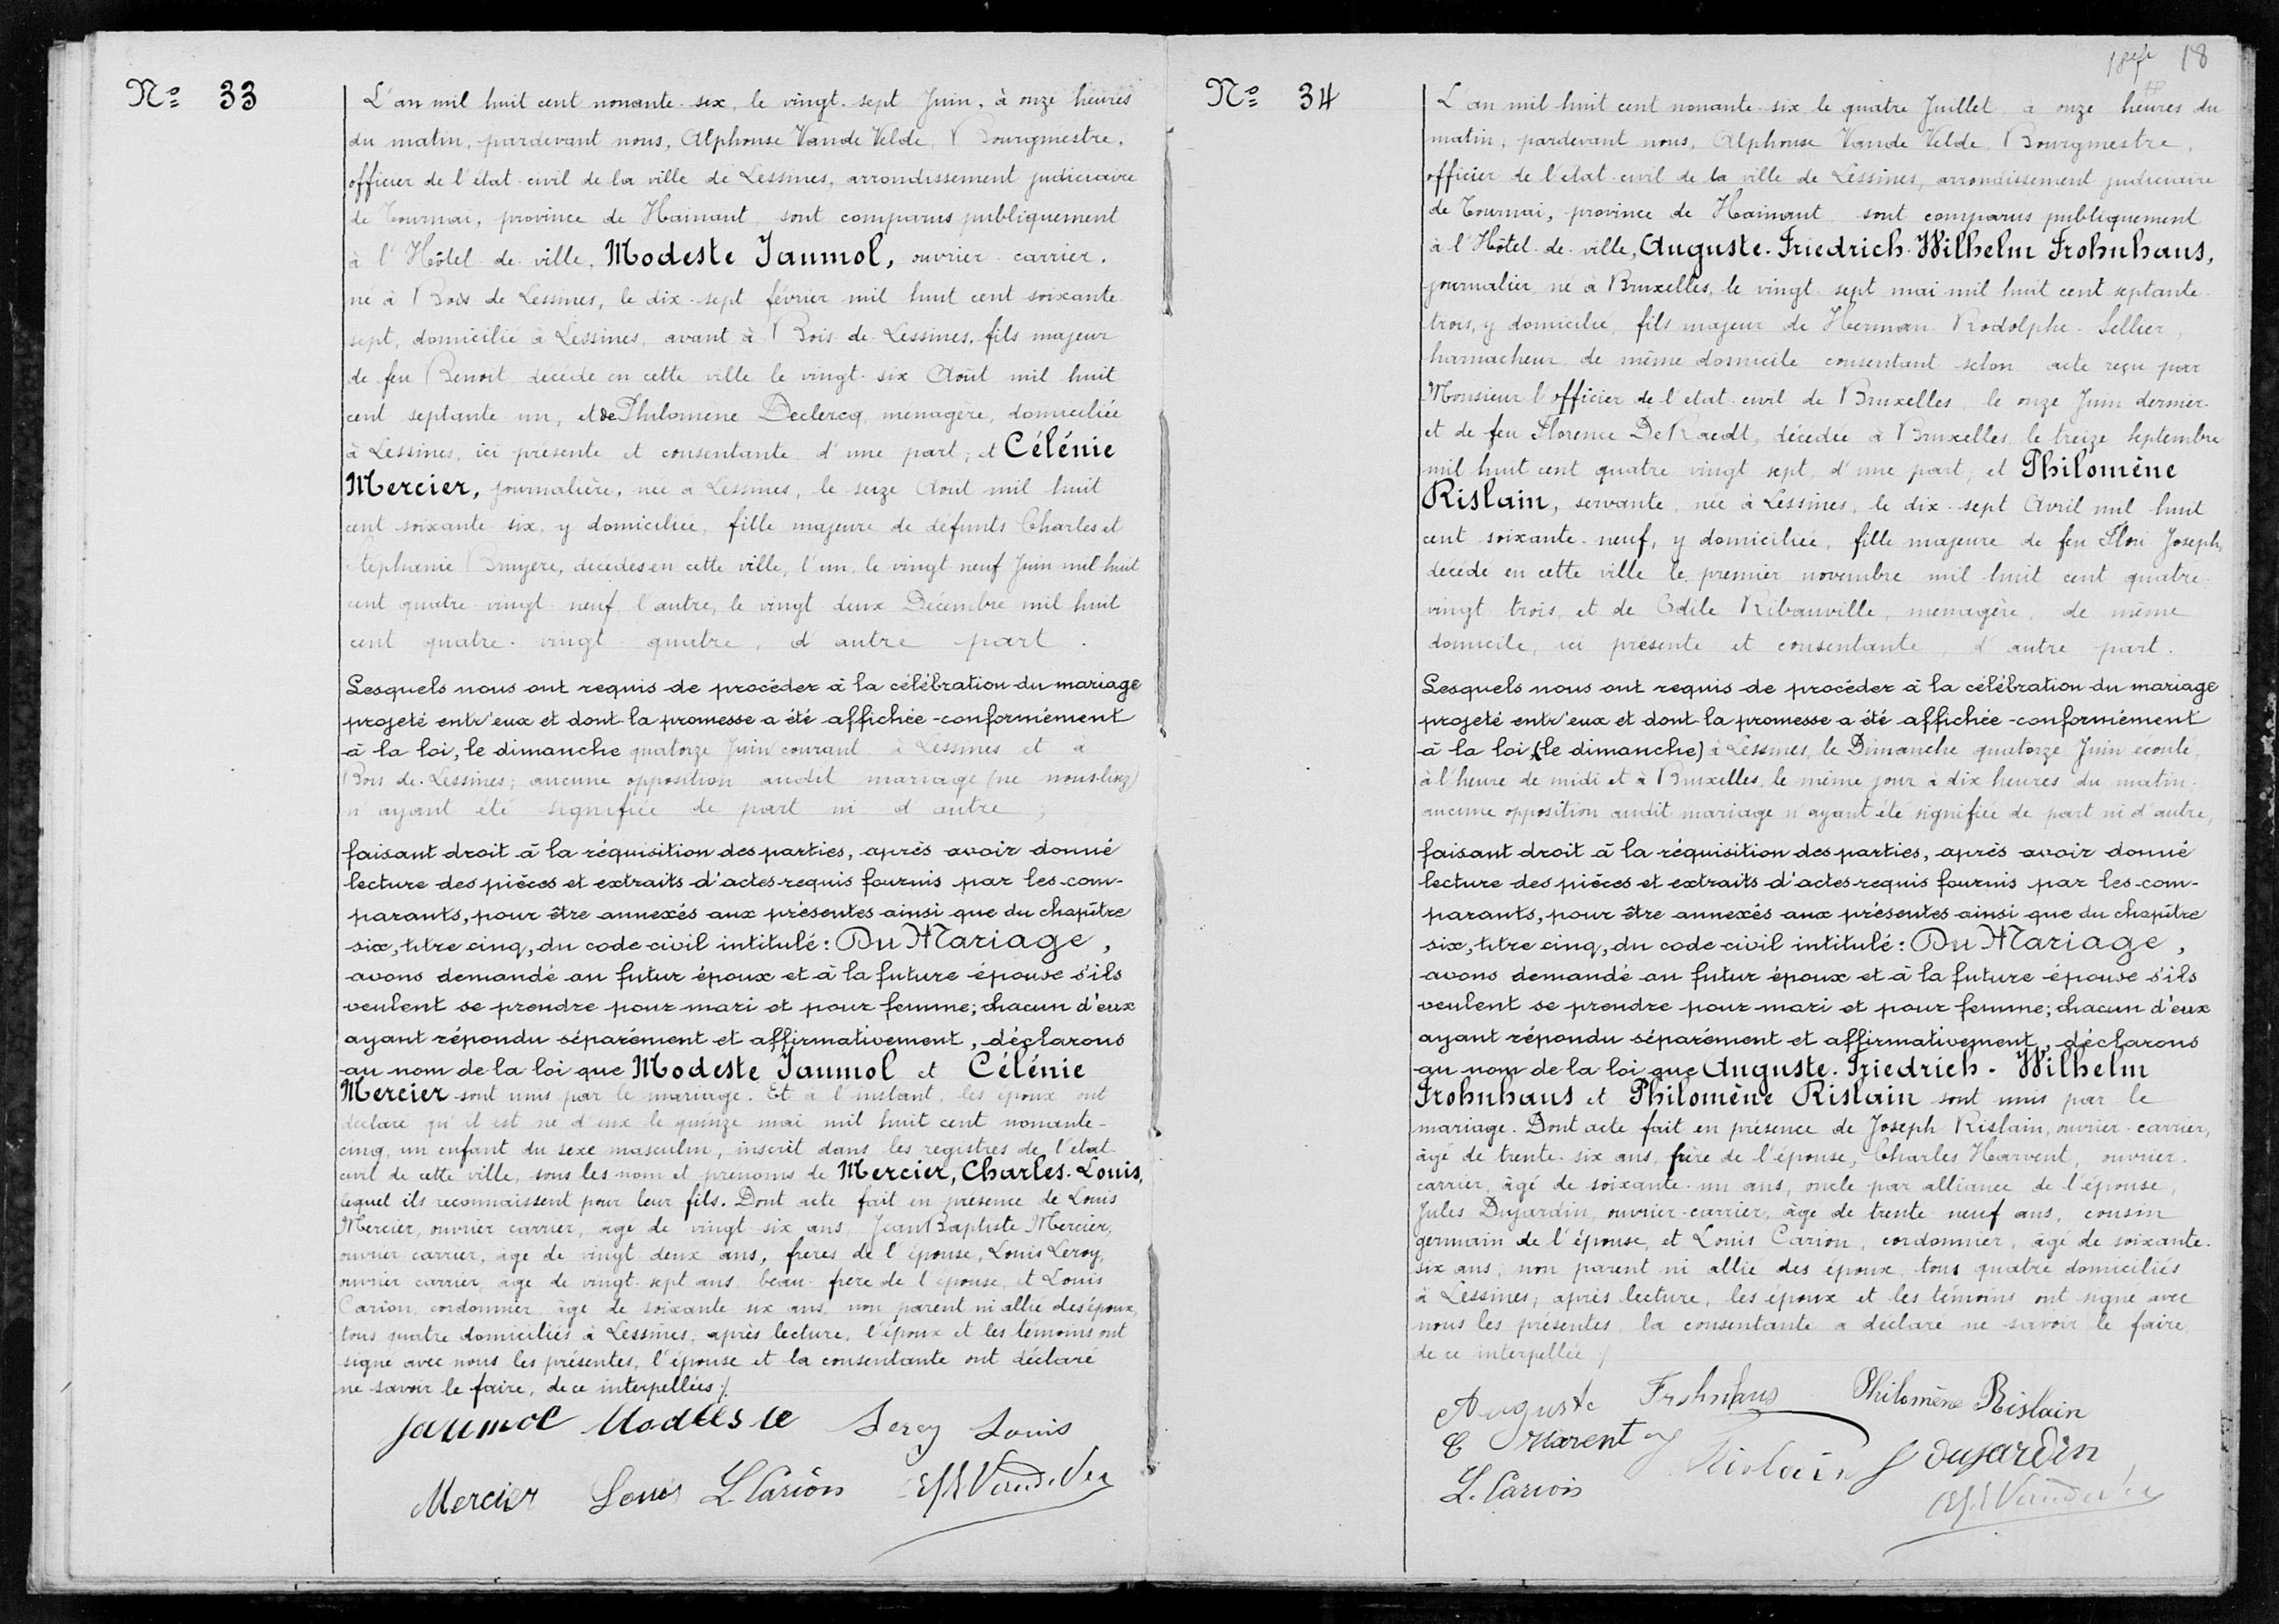 Nº 33
L'an mil huit cent nonante-six, le vingt-sept Juin, à onze heures
du matin, pardevant nous, Alphonse Vande Velde, Bourgmestre,
officier de l'état-civil de la ville de Lessines, arrondissement judiciaire
de Tournai, province de Hainaut sont comparus publiquement
à l'Hôtel-de-ville, Modeste Jaumol, ouvrier-carrier,
né à Bois-de-Lessines, le dix-sept février mil huit cent soixante-
sept, domicilié à Lessines, avant à Bois-de-Lessines, fils majeur
de feu Benoit décédé en cette ville le vingt-six Août mil huit
cent septante un, et de Philomène Declercq, ménagère, domiciliée
à Lessines, ici présente et consentante d'une part; et Célénie
Mercier, journalière, née à Lessines, le seize Août mil huit
cent soixante-six, y domiciliée, fille majeure de défunts Charles et
Stéphanie Bruyère, décédés en cette ville, l'un, le vingt neuf Juin mil huit
cent quatre-vingt-neuf, l'autre, le vingt deux Décembre mil huit
cent quatre-vingt-quatre, d'autre part.
Lesquels nous ont requis de procéder à la célébration du mariage
projeté entr'eux et dont la promesse a été affichée conformément
à la loi, le dimanche quatorze Juin courant à Lessines et à
Bois-de-Lessines; aucune opposition audit mariage (ne nous lisez)
n'ayant été signifiée de part ni d'autre;
faisant droit à la réquisition des parties, après avoir donné
lecture des pièces et extraits d'actes requis fournis par les com-
parants, pour être annexés aux présentes ainsi que du chapitre
six, titre cinq, du code civil intitulé: Du Mariage,
avons demandé au futur époux et à la future épouse s'ils
veulent se prendre pour mari et pour femme; chacun d'eux
ayant répondu séparément et affirmativement, déclarons
au nom de la loi que Modeste Jaumol et Célénie
Mercier sont unis par le mariage. Et à l'instant, les époux ont
déclaré qu'il est né d'eux le quinze mai mil huit cent nonante-
cinq, un enfant du sexe masculin, inscrit dans les registres de l'état-
civil de cette ville, sous les nom et prénoms de Mercier, Charles-Louis,
lequel ils reconnaissent pour leur fils. Dont acte fait en présence de Louis
Mercier, ouvrier carrier, âgé de vingt-six ans, Jean Baptiste Mercier,
ouvrier carrier, âgé de vingt-deux ans, frères de l'épouse, Louis Leroy,
ouvrier carrier, âgé de vingt-sept ans, beau-frère de l'épouse, et Louis
Carion, cordonnier, âgé de soixante-six ans, non parent ni allié des époux,
tous quatre domiciliés à Lessines, après lecture, l'époux et les témoins ont
signé avec nous les présentes, l'épouse et la consentante ont déclaré
ne savoir le faire, de ce interpellées ./.
Jaumol Modeste Leroy Louis
Mercier Louis L. Carion
18
Nº 34
L'an mil huit cent nonante-six le quatre Juillet à onze heures du
matin, pardevant nous, Alphonse Vande Velde, Bourgmestre,
officier de l'état-civil de la ville de Lessines, arrondissement judiciaire
de Tournai, province de Hainaut sont comparus publiquement
à l'Hôtel-de-ville, Auguste-Friedrich-Wilhelm Frohnhaus,
journalier, né à Bruxelles, le vingt-sept mai mil huit cent septante-
trois, y domicilié, fils majeur de Herman-Rodolphe-Sellier
harnacheur de même domicile consentant selon acte reçu par
Monsieur l'officier de l'état-civil de Bruxelles, le onze Juin dernier
et de feu Florence De Raedt, décédée à Bruxelles le treize septembre
mil huit cent quatre vingt sept, d'une part, et Philomène
Rislain, servante, née à Lessines, le dix-sept Avril mil huit
cent soixante-neuf, y domiciliée, fille majeure de feu Flori Joseph,
décédé en cette ville le premier novembre mil huit cent quatre
vingt trois, et de Odile Ribauville, ménagère, de même
domicile, ici présente et consentante, d'autre part.
Lesquels nous ont requis de procéder à la célébration du mariage
projeté entr'eux et dont la promesse a été affichée conformément
à la loi, (le dimanche) à Lessines, le Dimanche quatorze Juin écoulé,
à l'heure de midi et à Bruxelles, le même jour à dix heures du matin,
aucune opposition audit mariage n'ayant été signifiée de part ni d'autre,
faisant droit à la réquisition des parties, après avoir donné
lecture des pièces et extraits d'actes requis fournis par les com-
parants, pour être annexés aux présentes ainsi que du chapitre
six, titre cinq, du code civil intitulé: Du Mariage,
avons demandé au futur époux et à la future épouse s'ils
veulent se prendre pour mari et pour femme; chacun d'eux
ayant répondu séparément et affirmativement, déclarons
au nom de la loi que Auguste-Friedrich-Wilhelm
Frohnhaus et Philomène Rislain sont unis par le
mariage. Dont acte fait en présence de Joseph Rislain, ouvrier-carrier,
âgé de trente-six ans, frère de l'épouse, Charles Harvent, ouvrier-
carrier, âgé de soixante-un ans, oncle par alliance de l'épouse,
Jules Dujardin, ouvrier-carrier, âgé de trente neuf ans, cousin
germain de l'épouse, et Louis Carion, cordonnier, âgé de soixante-
six ans, non parent ni allié des époux, tous quatre domiciliés
à Lessines; après lecture, les époux et les témoins ont signé avec
nous les présentes, la consentante a déclaré ne savoir le faire,
de ce interpellée ./.
Auguste Frohnhaus Philomène Rislain
C Harvent J Rislain J Dujardin
L. Carion